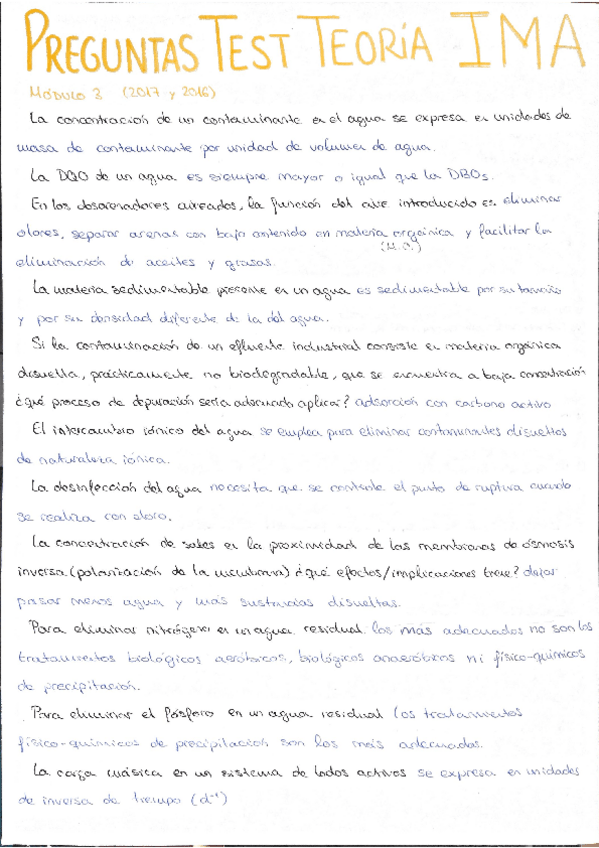 PREGUNTAS TEST TEORÍA IMA
MÓDULO 3 (2017 y 2016)
La concentración de un contaminante en el agua se expresa en unidades de
masa de contaminante por unidad de volumen de agua.
La DQO de un agua es siempre mayor o igual que la DBO₅.
En los desarenadores aireados, la función del aire introducido es eliminar
olores, separar arenas con bajo contenido en materia orgánica y facilitar la
(M.O.)
eliminación de aceites y grasas.
La materia sedimentable presente en un agua es sedimentable por su tamaño
y por su densidad diferente de la del agua.
Si la contaminación de un efluente industrial consiste en materia orgánica
disuelta, prácticamente no biodegradable, que se encuentra a baja concentración
¿qué proceso de depuración sería adecuado aplicar? adsorción con carbono activo
El intercambio iónico del agua se emplea para eliminar contaminantes disueltos
de naturaleza iónica.
La desinfección del agua necesita que se contente el punto de ruptura cuando
se realiza con cloro.
La concentración de sales en la proximidad de las membranas de ósmosis
inversa (polarización de la membrana) ¿qué efectos/implicaciones tiene? dejar
pasar menos agua y más sustancias disueltas.
Para eliminar nitrógeno en un agua residual los más adecuados no son los
tratamientos biológicos aeróbicos, biológicos anaeróbicos ni físico-químicos
de precipitación.
Para eliminar el fósforo en un agua residual los tratamientos
físico-químicos de precipitación son los más adecuados.
La carga másica en un sistema de lodos activos se expresa en unidades
de inversa de tiempo (d⁻¹)